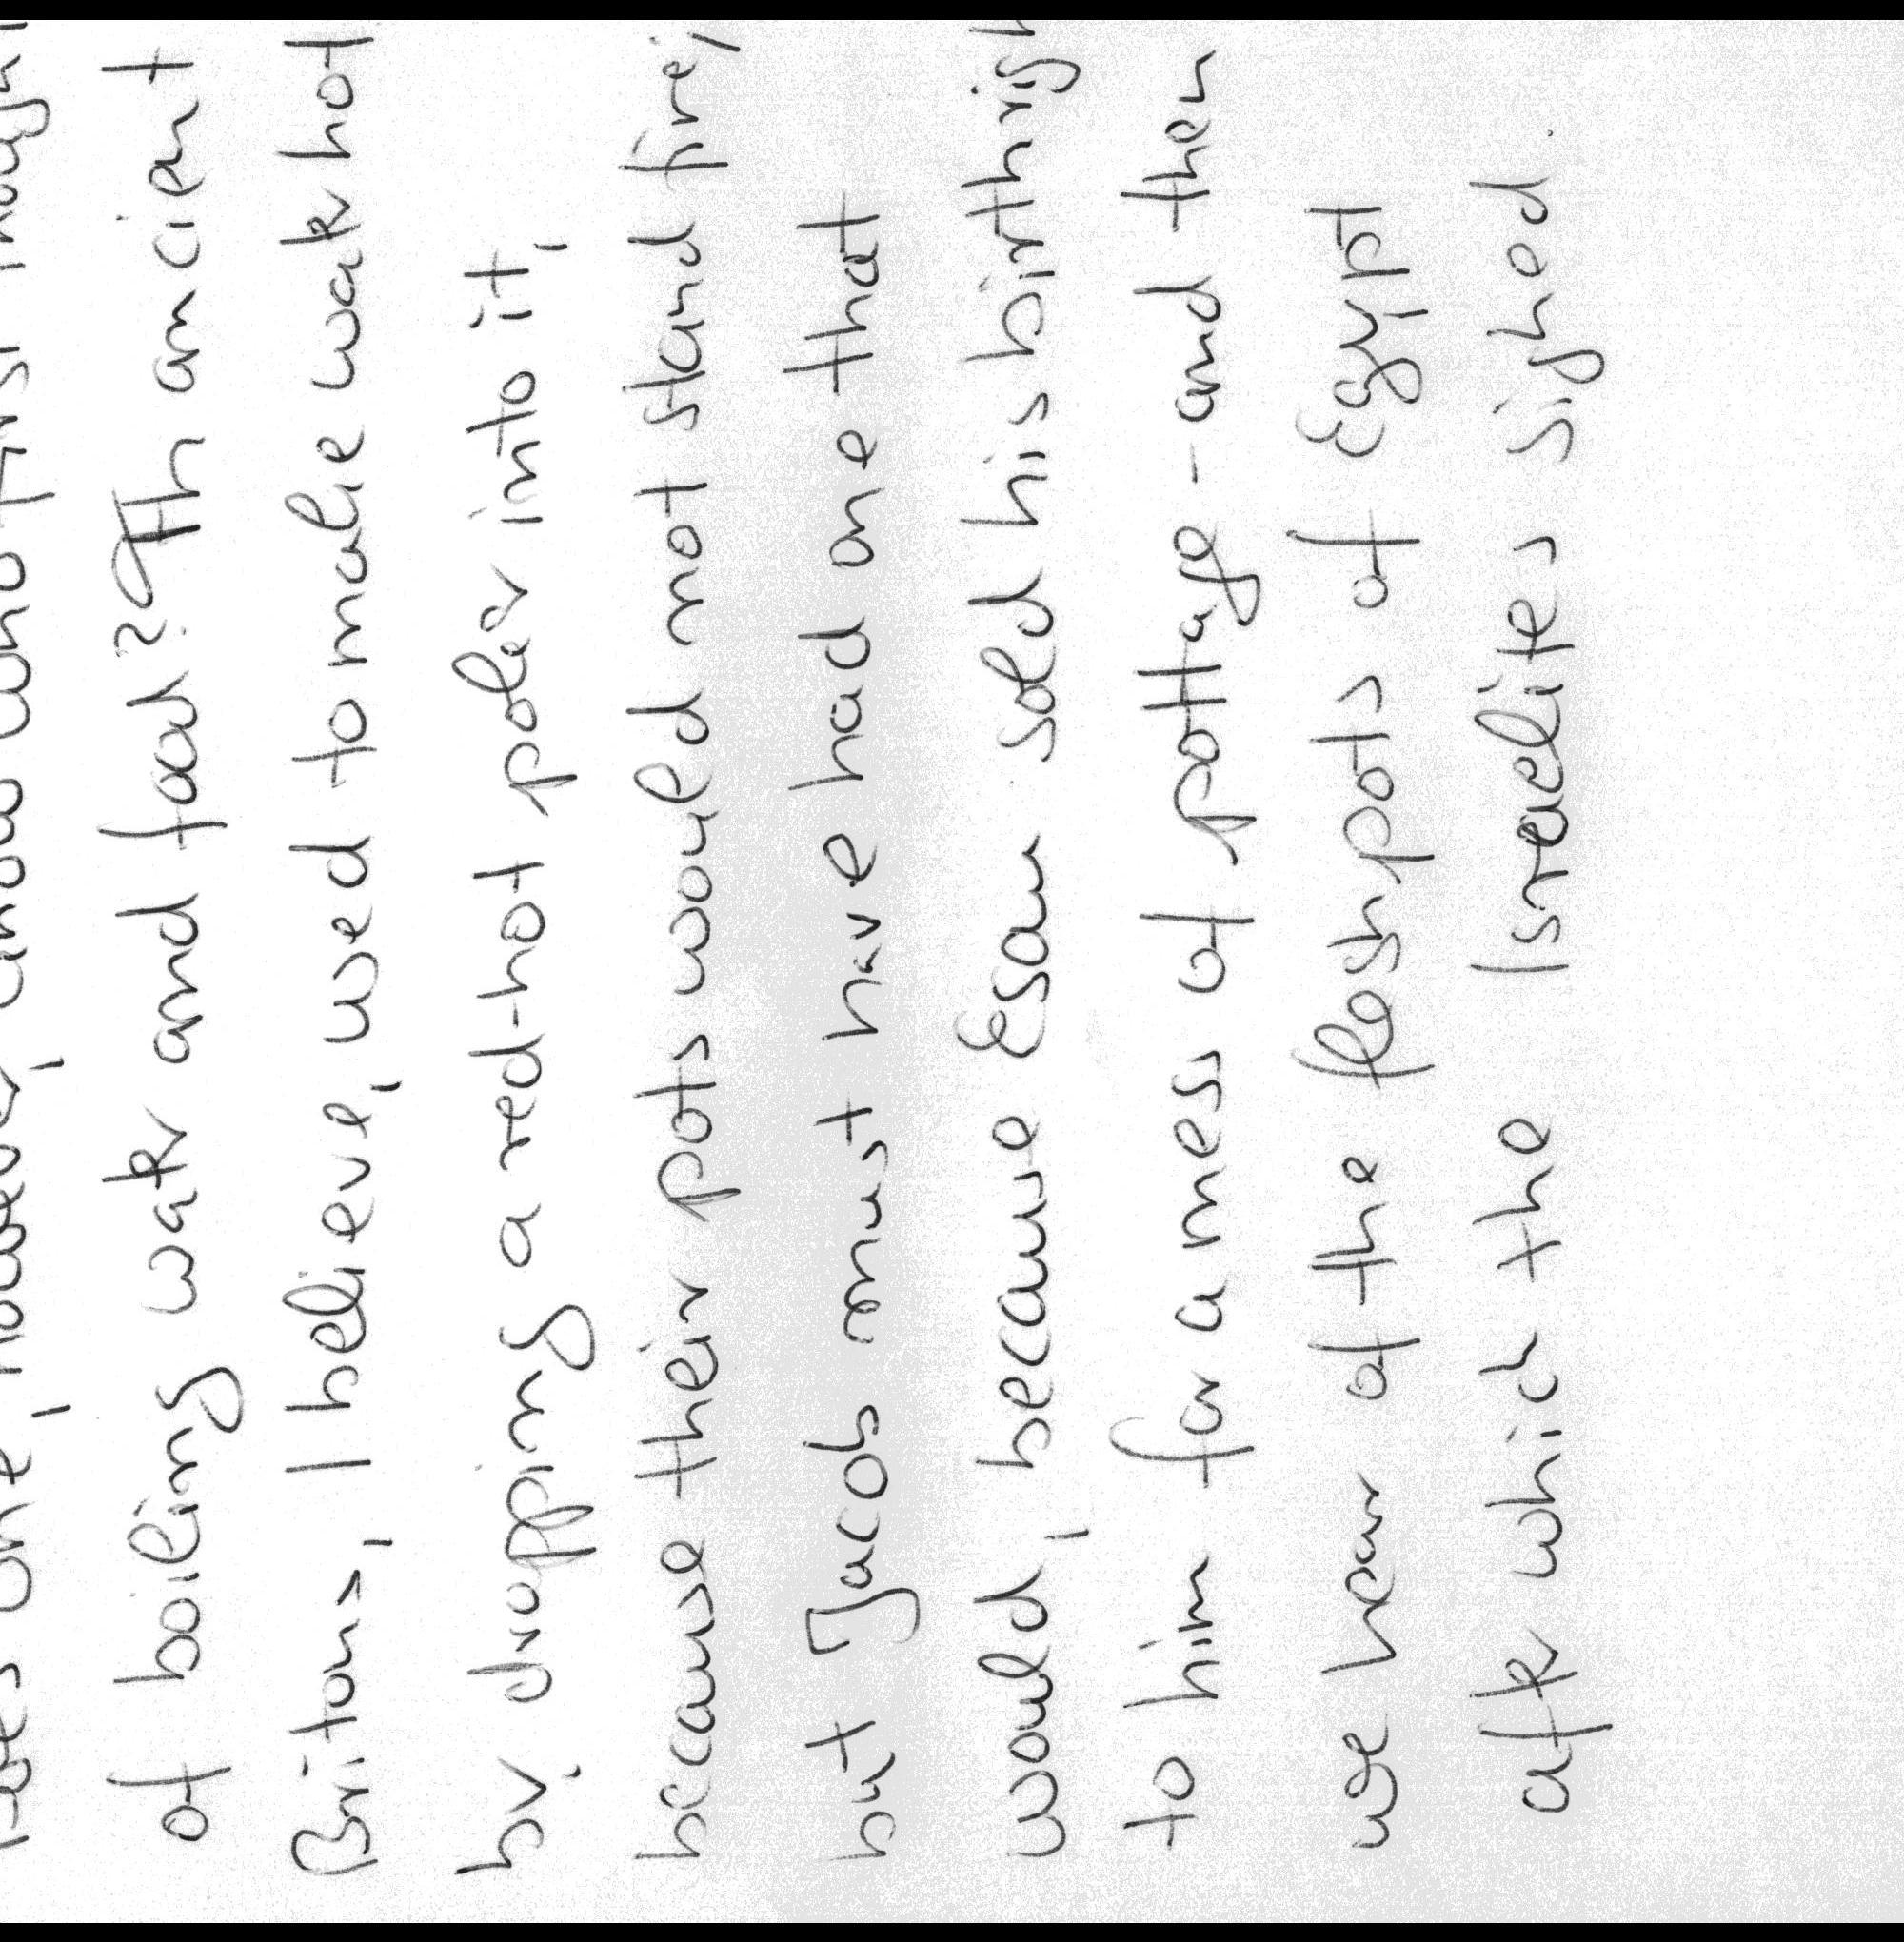 does one, however, know who first thought
of boiling water and food? Th ancient
Britons, I believe, used to make water hot
by dropping a red-hot poker into it,
because their pots would not stand fire;
but Jacob must have had one that
would, because Esau sold his birthrigh
to him for a mess of pottage - and then
we hear of the fleshpots of Egypt
after which the Israelites sighed.